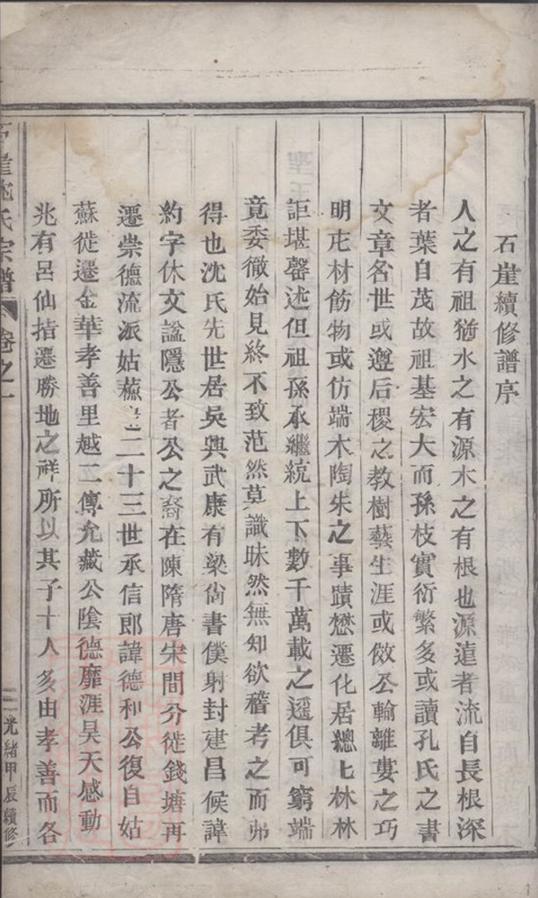 石崖續修譜序
人之有祖猶水之有源木之有根也源遠者流自長根深
者葉自茂故祖基宏大而孫枝實衍繁多或讀孔氏之書
文章名世或遵后稷之教樹藝生涯或傚公輸離婁之巧
明庀材飭物或仿端木陶朱之事蹟懋遷化居總匕林林
詎堪罄述但祖孫承繼統上下數千萬載之遥俱可窮端
竟委徹始見終不致茫然莫識昧然無知欲稽考之而弗
得也沈氏先世居吳興武康有梁尙書僕射封建昌候諱
約字休文謚隱公者公之裔在陳隋唐宋間分徙錢塘再
遷崇德流派姑蘇 二十三世承信郎諱德和公復自姑
蘇徙遷金華孝善里越二傳允藏公陰德靡涯昊天感動
兆有呂仙指遷勝地之祥所以其子十人多由孝善而各
石崖沈氏宗譜 卷之一 光緒甲辰續修